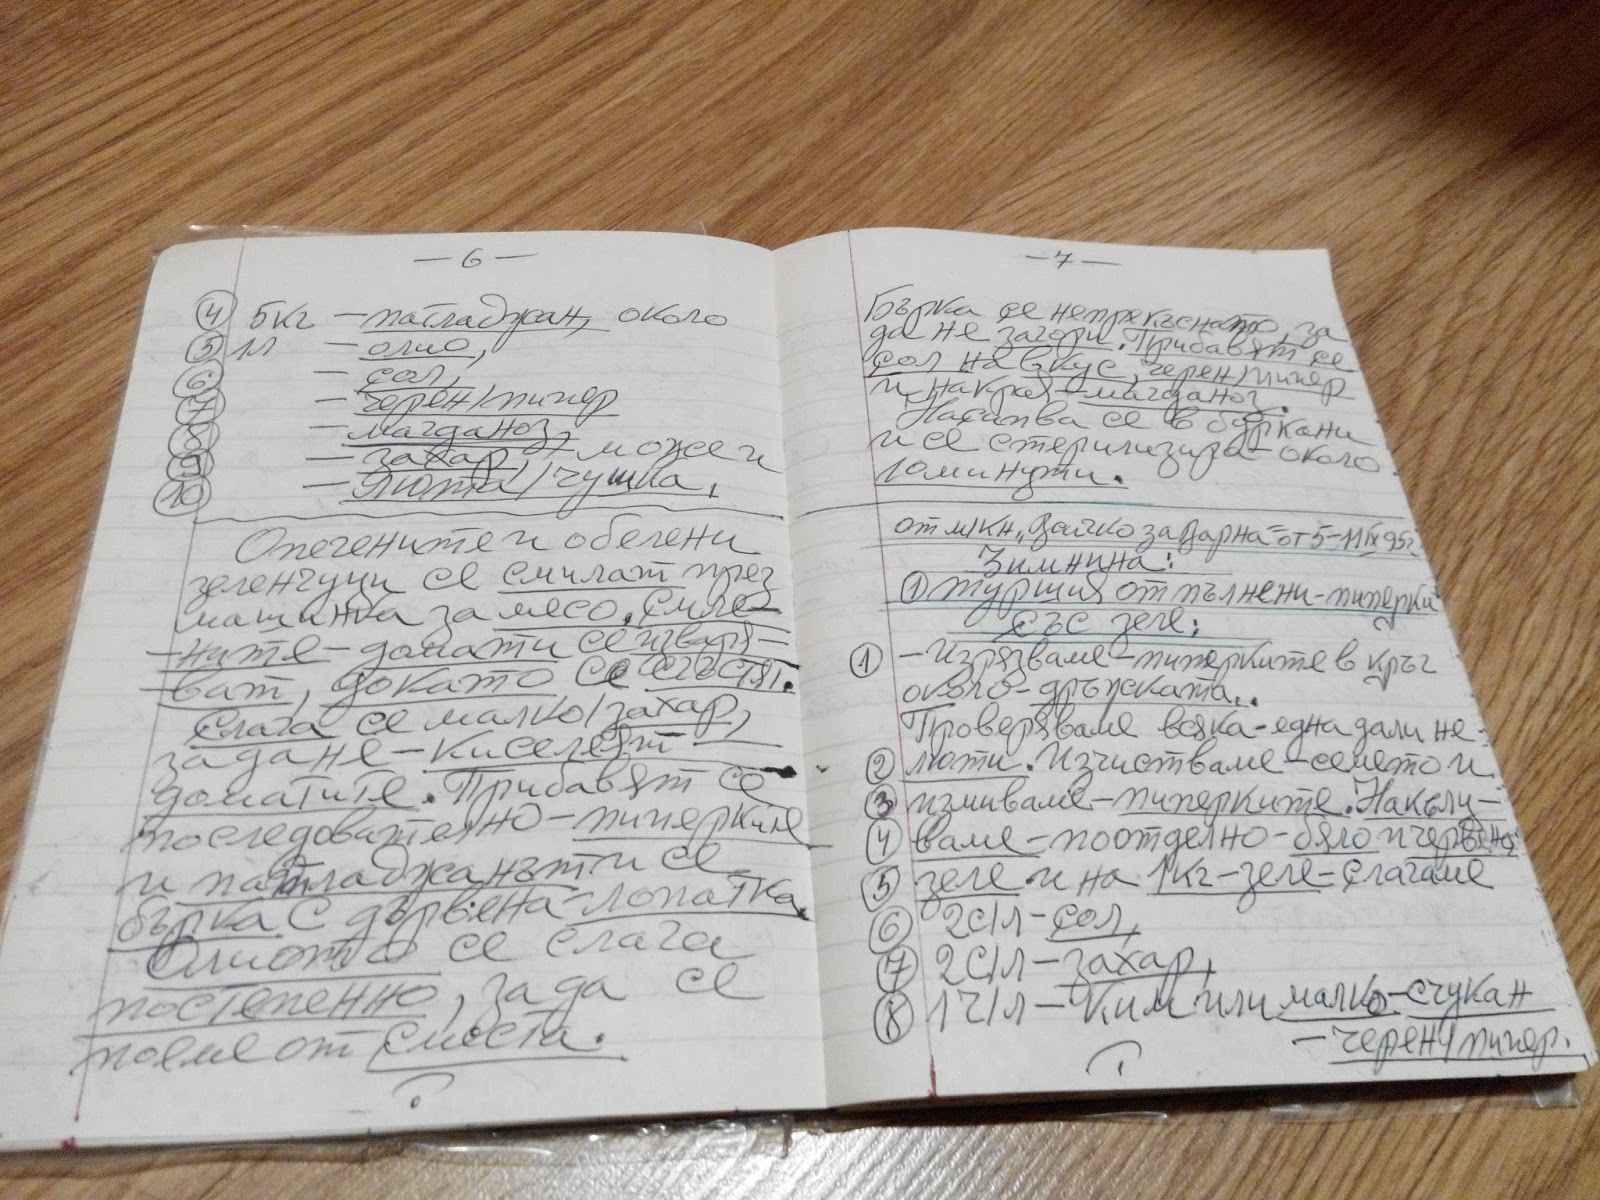 — 6 —
④ 5кг — патладжан, около
⑤ 1л — олио,
⑥ — сол,
⑦ — черен/пипер
⑧ — магданоз,
⑨ — захар, може и
⑩ — люта/чушка.
Опечените и обелени
зеленчуци се смилат през
машинка за месо. Смле-
ните - домати се изваря-
ват, докато се сгъстят.
Слага се малко/захар,
за да не - киселеят —
доматите. Прибавят се
последователно - пиперките
и патладжанът и се
бърка с дървена - лопатка.
Олиото се слага
постепенно, за да се
поеме от сместа.
— 7 —
Бърка се непрекъснато, за
да не загори. Прибавят се
сол на вкус, черен/пипер
и накрая - магданоз.
Насипва се в буркани
и се стерилизира - около
10 минути.
от за Варна = от 5-11 IX 95г
Зимнина:
① Туршия от пълнени - пиперки
със зеле:
① - Изрязваме - пиперките в кръг
около - дръжката..
Проверяваме всяка - една дали не -
② люти. Изчистваме - семето и
③ измиваме - пиперките. Накълц-
④ ваме - поотделно - бяло и червено
⑤ зеле и на 1кг - зеле - слагаме
⑥ 2с/л - сол,
⑦ 2с/л - захар,
⑧ 1ч/л - ким или малко - счукан
— черен/пипер.